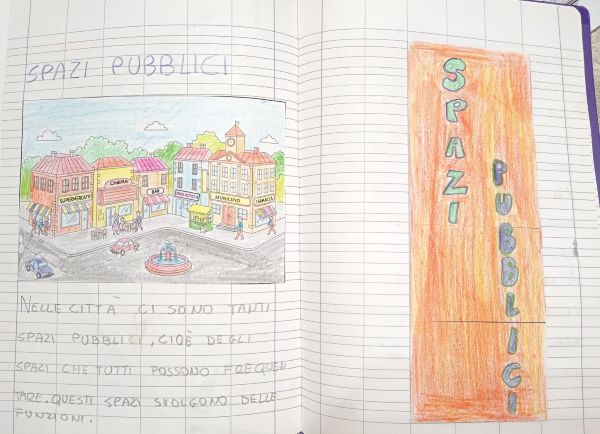 SPAZI PUBBLICI
SUPERMERCATO
CINEMA
BAR
MUNICIPIO
FARMACIA
NELLE CITTÀ CI SONO TANTI
SPAZI PUBBLICI, CIOÈ DEGLI
SPAZI CHE TUTTI POSSONO FREQUEN
TARE. QUESTI SPAZI SVOLGONO DELLE
FUNZIONI.
SPAZI
PUBBLICI